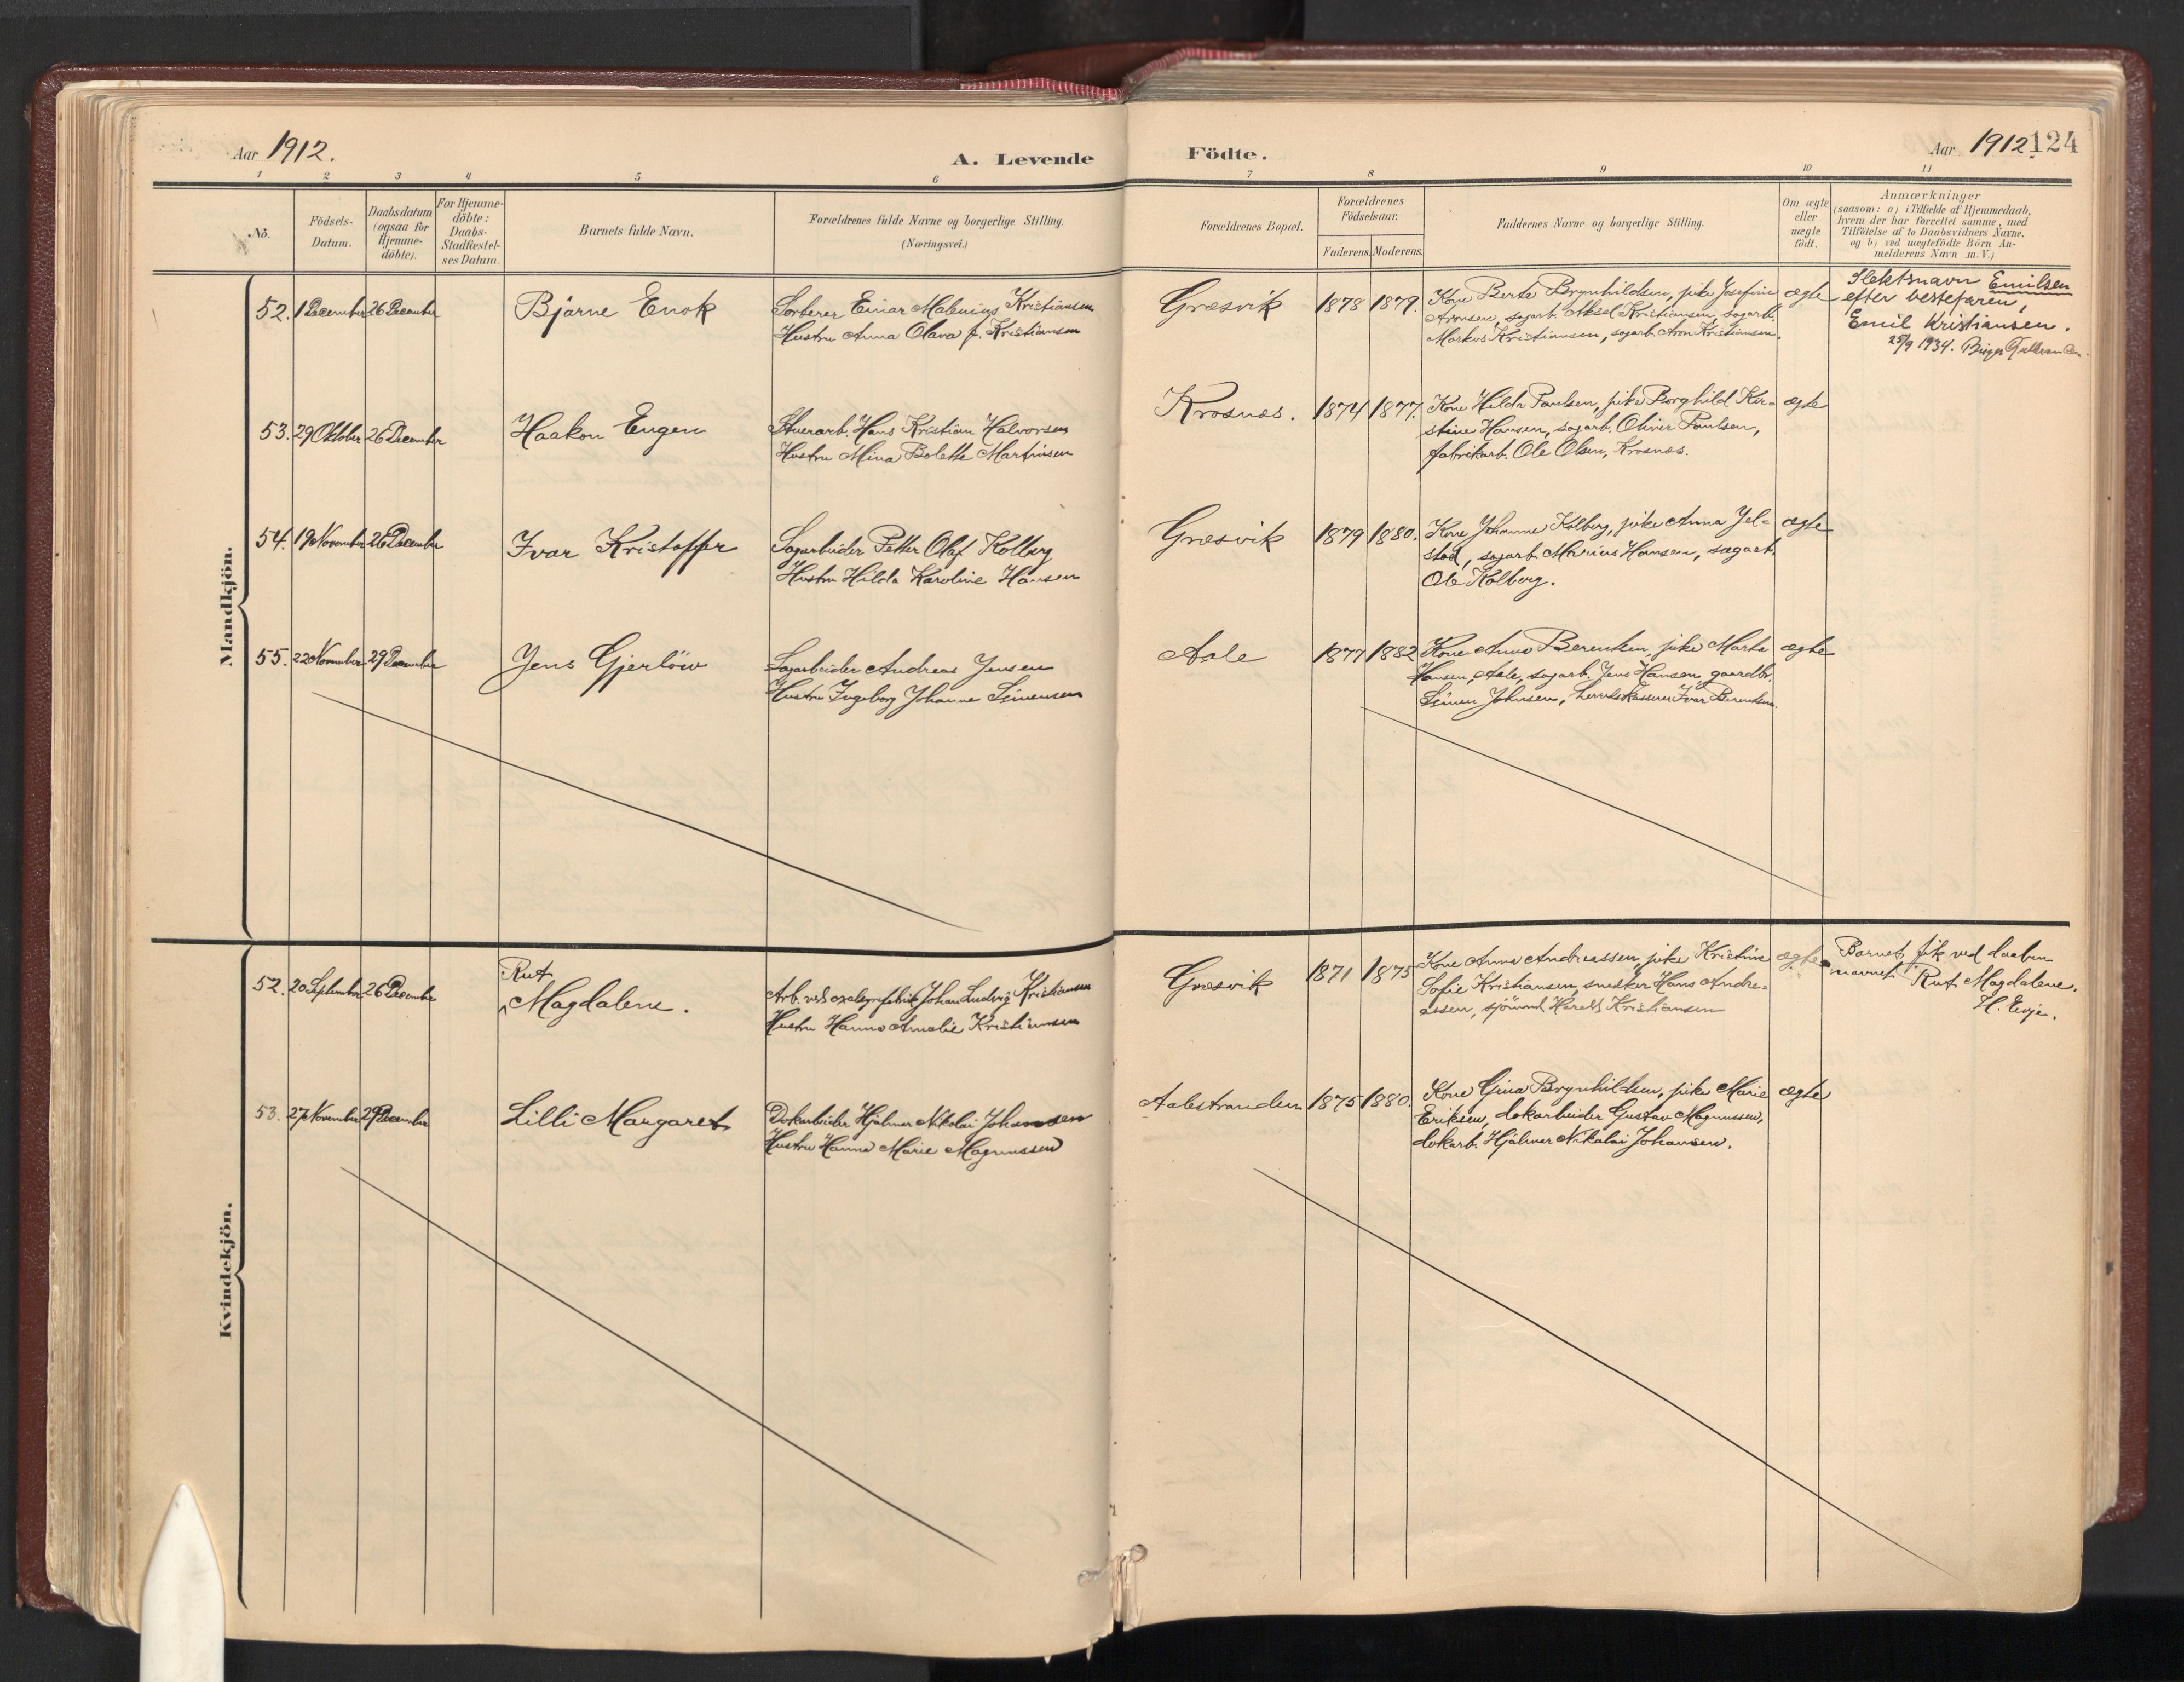 Aar 1912.
A. Levende
Födte.
Aar 1912. 124
1 2 3 4 5 6 7 8 9 10 11
No.
Födsels-Datum.
Daabsdatum (ogsaa for Hjemme-döbte).
For Hjemme-döbte: Daabs-Stadfæstel-ses Datum.
Barnets fulde Navn.
Forældrenes fulde Navne og borgerlige Stilling.
(Næringsvei.)
Forældrenes Bopæl.
Forældrenes Födselsaar.
Faderens. Moderens.
Faddernes Navne og borgerlige Stilling.
Om ægte eller uægte födt.
Anmærkninger
(saasom: a) i Tilfælde af Hjemmedaab,
hvem der har forrettet samme, med
Tilföielse af to Daabsvidners Navne,
og b) ved uægtefödte Börn An-
melderens Navn m. V.)
Mandkjön.
52. 1 December 26 December Bjarne Enok
Sorterer Einar Malenius Kristiansen
Hustru Anna Olava f. Kristiansen
Græsvik 1878 1879.
Kone Berte Brynhildsen, pike Josefine
Aronsen, sagarb. Aksel Kristiansen, sagarb.
Markus Kristiansen, sagarb. Aron Kristiansen.
ægte
Slektsnavn Emilsen
efter bestefaren,
Emil Kristiansen.
25/9 1934. Birger
53. 29 Oktober 26 December Haakon Eugen
Stuerarb. Hans Kristian Halvorsen
Hustru Mina Bolette Martinsen
Krosnæs. 1874 1877.
Kone Hilda Paulsen, pike Borghild Kir-
stine Hansen, sagarb. Oliver Paulsen,
fabrikarb. Ole Olsen, Krosnæs.
ægte
54. 19 November 26 December Ivar Kristoffer
Sagarbeider Petter Olaf Kolberg
Hustru Hilda Karoline Hansen
Græsvik 1879 1880.
Kone Johanne Kolberg, pike Anna Jel-
stad, sagarb. Marius Hansen, sagarb.
Ole Kolberg.
ægte
55. 22 November 29 December Jens Gjerlöw
Sagarbeider Andreas Jensen
Hustru Ingeborg Johanne Simensen
Aale 1877 1882
Kone Anna Berentsen, pike Marta
Hansen, Aale, sagarb. Jens Hansen, gaardbr.
Simen Johnsen, herredskasserer Ivar Berentsen.
ægte
Kvindekjön.
52. 20 September 26 December Rut
Magdalene.
Arb. ved oxalsyrefabrik Johan Ludvig Kristiansen
Hustru Hanna Amalie Kristiansen
Græsvik 1871 1875
Kone Anna Andreassen, pike Kristine
Sofie Kristiansen, snekker Hans Andre-
assen, sjömand Harald Kristiansen
ægte
Barnet fik ved daaben
navnet Rut Magdalene.
H. Evje.
53. 27 November 29 December Lilli Margaret
Dokarbeider Hjalmar Nikolai Johansen
Hustru Hanna Marie Magnussen
Aalestranden 1875 1880.
Kone Gina Brynhildsen, pike Marie
Eriksen, dokarbeider Gustav Magnussen,
dokarb. Hjalmar Nikolai Johansen.
ægte